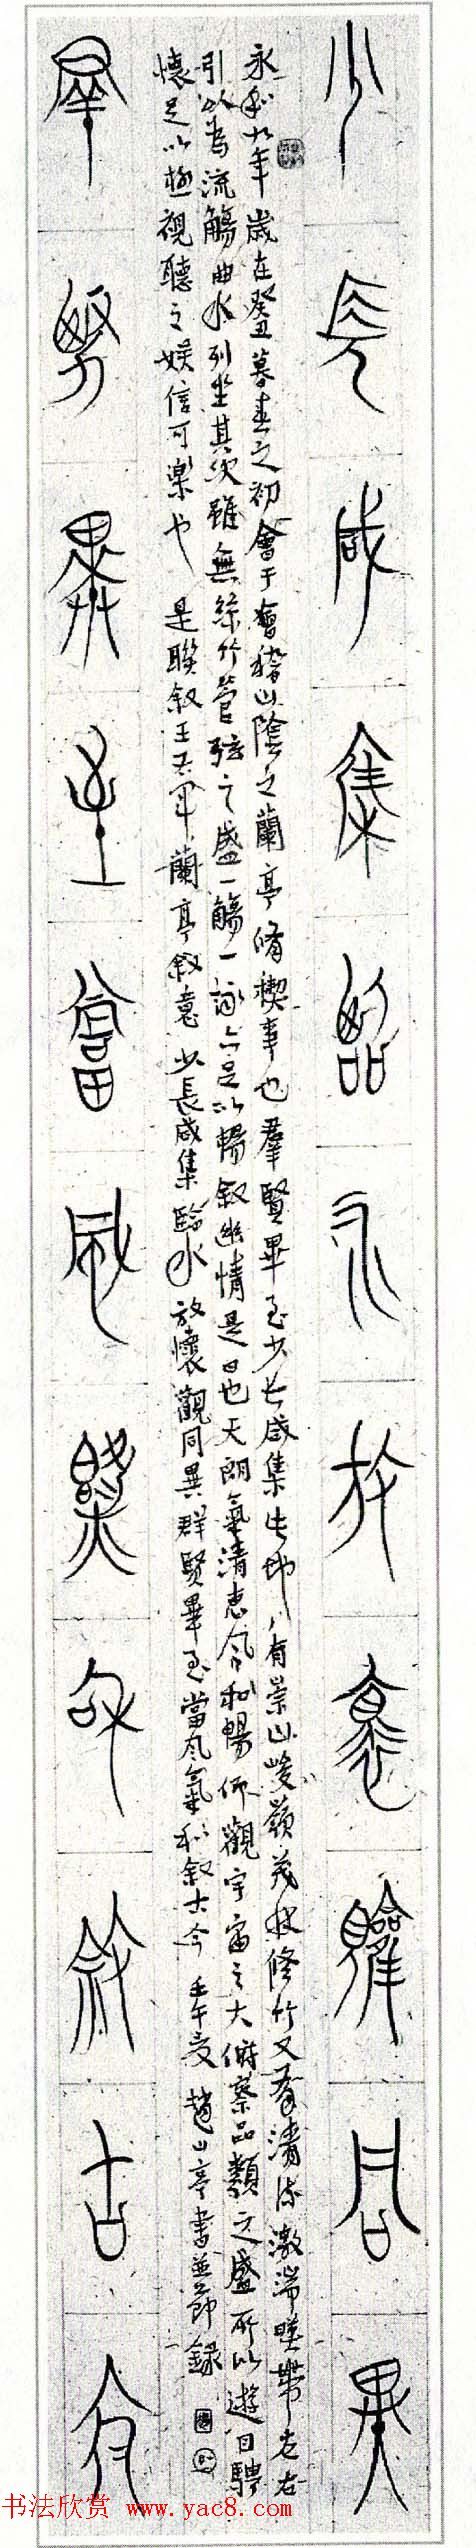 少長咸集臨水放懷觀同異
永和九年歲在癸丑暮春之初會于會稽山陰之蘭亭脩禊事也羣賢畢至少長咸集此地有崇山峻嶺茂林修竹又有清流激湍暎帶左右
引以為流觴曲水列坐其次雖無絲竹管弦之盛一觴一詠亦足以暢敘幽情是日也天朗氣清惠風和暢仰觀宇宙之大俯察品類之盛所以遊目騁
懷足以極視聽之娛信可樂也 是聯敘王右軍蘭亭敘意 少長咸集臨水放懷觀同異群賢畢至當風氣和敘古今 壬午夏 趙山亭書並節錄
羣賢畢至當風氣和敘古今
书法欣赏 www.yac8.com